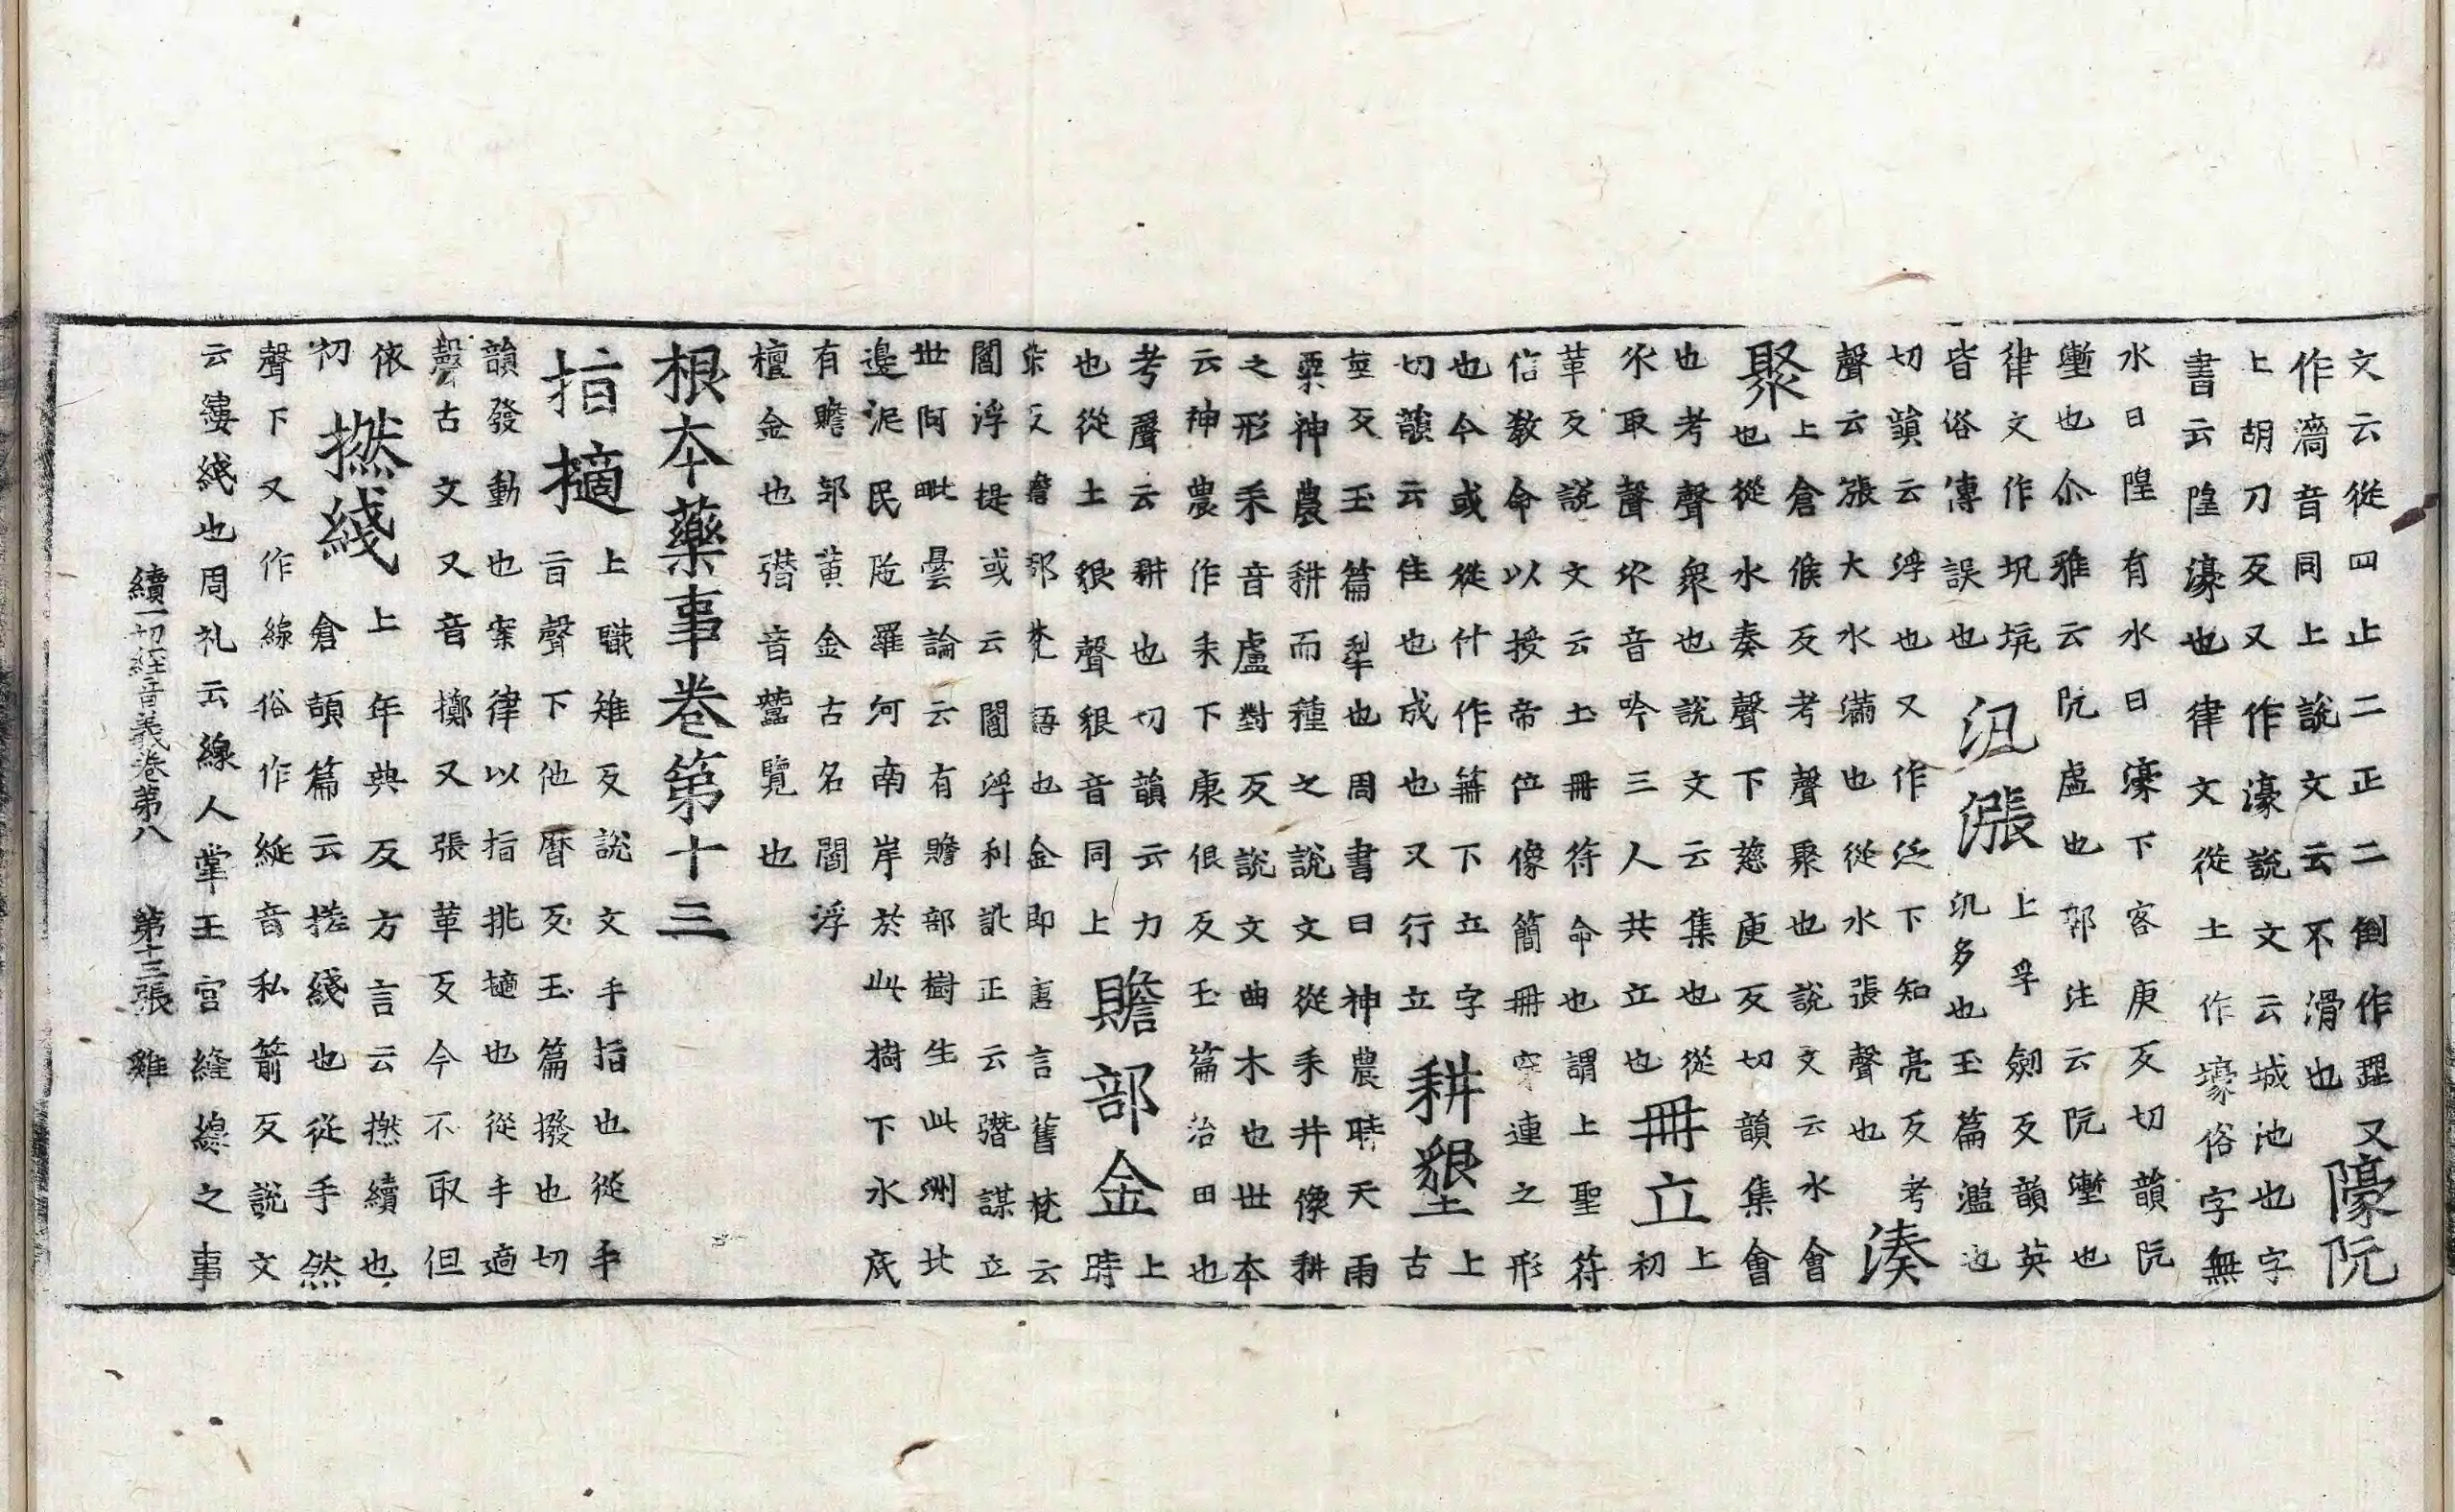 文云從四止二正二倒作歰又
作濇音同上說文云不滑也
㠊阬
上胡刀反又作濠說文云城池也字
書云隍濠也律文從土作壕俗字無
水曰隍有水曰濠下客庚反切韻阬
壍也尒雅云阬虛也郭注云阬壍也
律文作坑垙
皆俗傳誤也
汎漲
上孚劒反韻英
汎多也玉篇濫也
切韻云浮也又作泛下知亮反考
聲云漲大水滿也從水張聲也
湊
聚
上倉候反考聲聚也說文云水會
也從水奏聲下慈庾反切韻集會
也考聲衆也說文云集也從
乑取聲乑音吟三人共立也
冊立
上初
革反說文云土冊符命也謂上聖符
信敎命以授帝位像簡冊穿連之形
也今或從什作䇲下立字
切韻云住也成也又行立
耕墾
上古
莖反玉篇犁也周書曰神農時天雨
粟神農耕而種之說文從耒井像耕
之形耒音盧對反說文曲木也世本
云神農作耒下康佷反玉篇治田也
考聲云耕也切韻云力
也從土貇聲貇音同上
贍部金
上時
染反贍部梵語也金即唐言舊梵云
閻浮提或云閻浮利訛正云䜿謀立
世阿毗曇論云有贍部樹生此洲北
邊泥民陁羅河南岸於此樹下水底
有贍部黃金古名閻浮
檀金也䜿音蠶覽也
根本藥事卷第十三
指擿
上職雉反說文手指也從手
旨聲下他曆反玉篇撥也切
韻發動也案律以指挑擿也從手適
聲古文又音擲又張革反今不取但
依
初
撚綫
上年典反方言云撚續也
倉頡篇云搓綫也從手然
聲下又作線俗作綖音私箭反說文
云縷綫也周礼云線人掌王宮縫線之事
續一切經音義卷第八　第十三張　雞